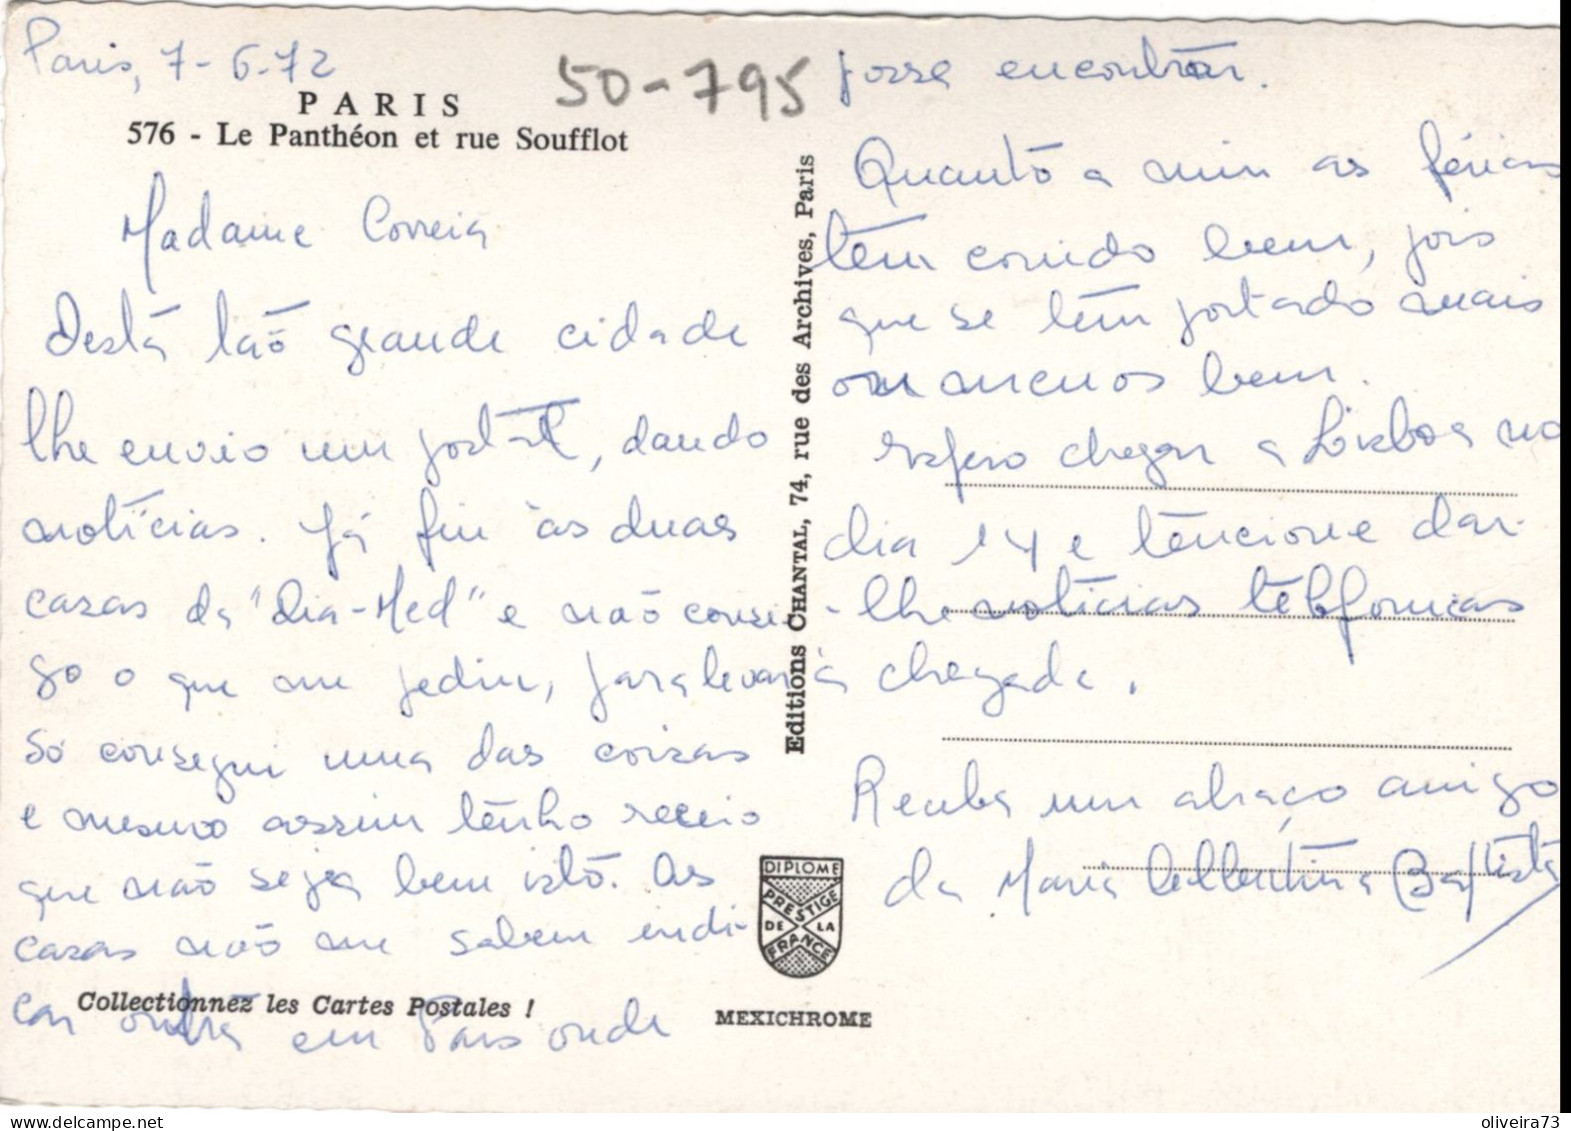 Paris, 7-6-72
50-795
PARIS
576 - Le Panthéon et rue Soufflot
Madame Correia
Desta tão grande cidade
lhe envio um postal, dando
notícias. Já fui às duas
casas da "Dia-Med" e não conse-
go o que me pediu, para levar.
Só consegui uma das coisas
e mesmo assim tenho receio
que não seja bem isto. As
casas não me sabem indi-
car outra em Paris onde
Collectionnez les Cartes Postales !
Editions CHANTAL, 74, rue des Archives, Paris
DIPLOME
PRESTIGE
DE LA
FRANCE
MEXICHROME
possa encontrar.
Quanto a mim as férias
têm corrido bem, pois
que se têm portado mais
ou menos bem.
Espero chegar a Lisboa no
dia 14 e tencione dar-
-lhe notícias telefonicas
à chegada.
Receba um abraço amigo
da Maria Albertina Baptista
oliveira73